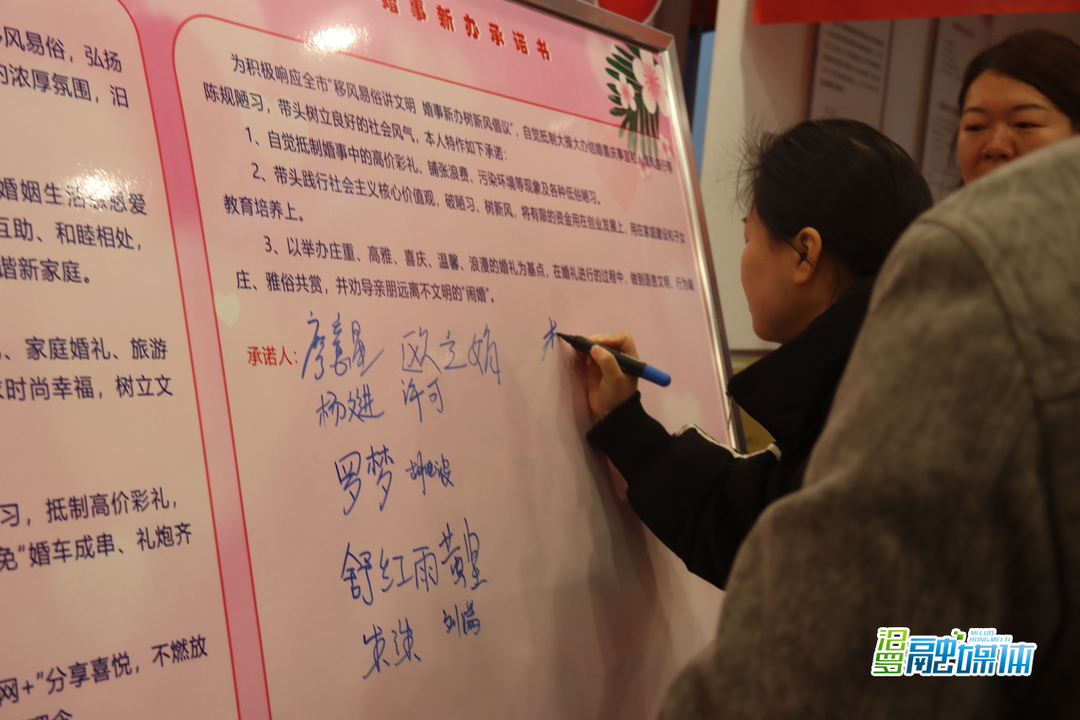 移风易俗，弘扬
的浓厚氛围，汨
婚姻生活
恩爱
互助、和睦相处，
谐新家庭。
、家庭婚礼、旅游
求时尚幸福，树立文
习，抵制高价彩礼，
免“婚车成串、礼炮齐
网+”分享喜悦，不燃放
婚事新办承诺书
为积极响应全市“移风易俗讲文明 婚事新办树新风倡议”，自觉抵制大操大办结婚喜庆事宜
陈规陋习，带头树立良好的社会风气，本人特作如下承诺：
1、自觉抵制婚事中的高价彩礼、铺张浪费、污染环境等现象及各种低俗陋习。
2、带头践行社会主义核心价值观，破陋习、树新风，将有限的资金用在创业发展上，用在家庭建设和子女
教育培养上。
3、以举办庄重、高雅、喜庆、温馨、浪漫的婚礼为基点，在婚礼进行的过程中，做到语言文明、行为端
庄、雅俗共赏，并劝导亲朋远离不文明的“闹婚”。
承诺人：
欧立娟
许可
罗梦
舒红雨 黄
刘
汨罗融媒体
MI LUO
RONG MEI TI